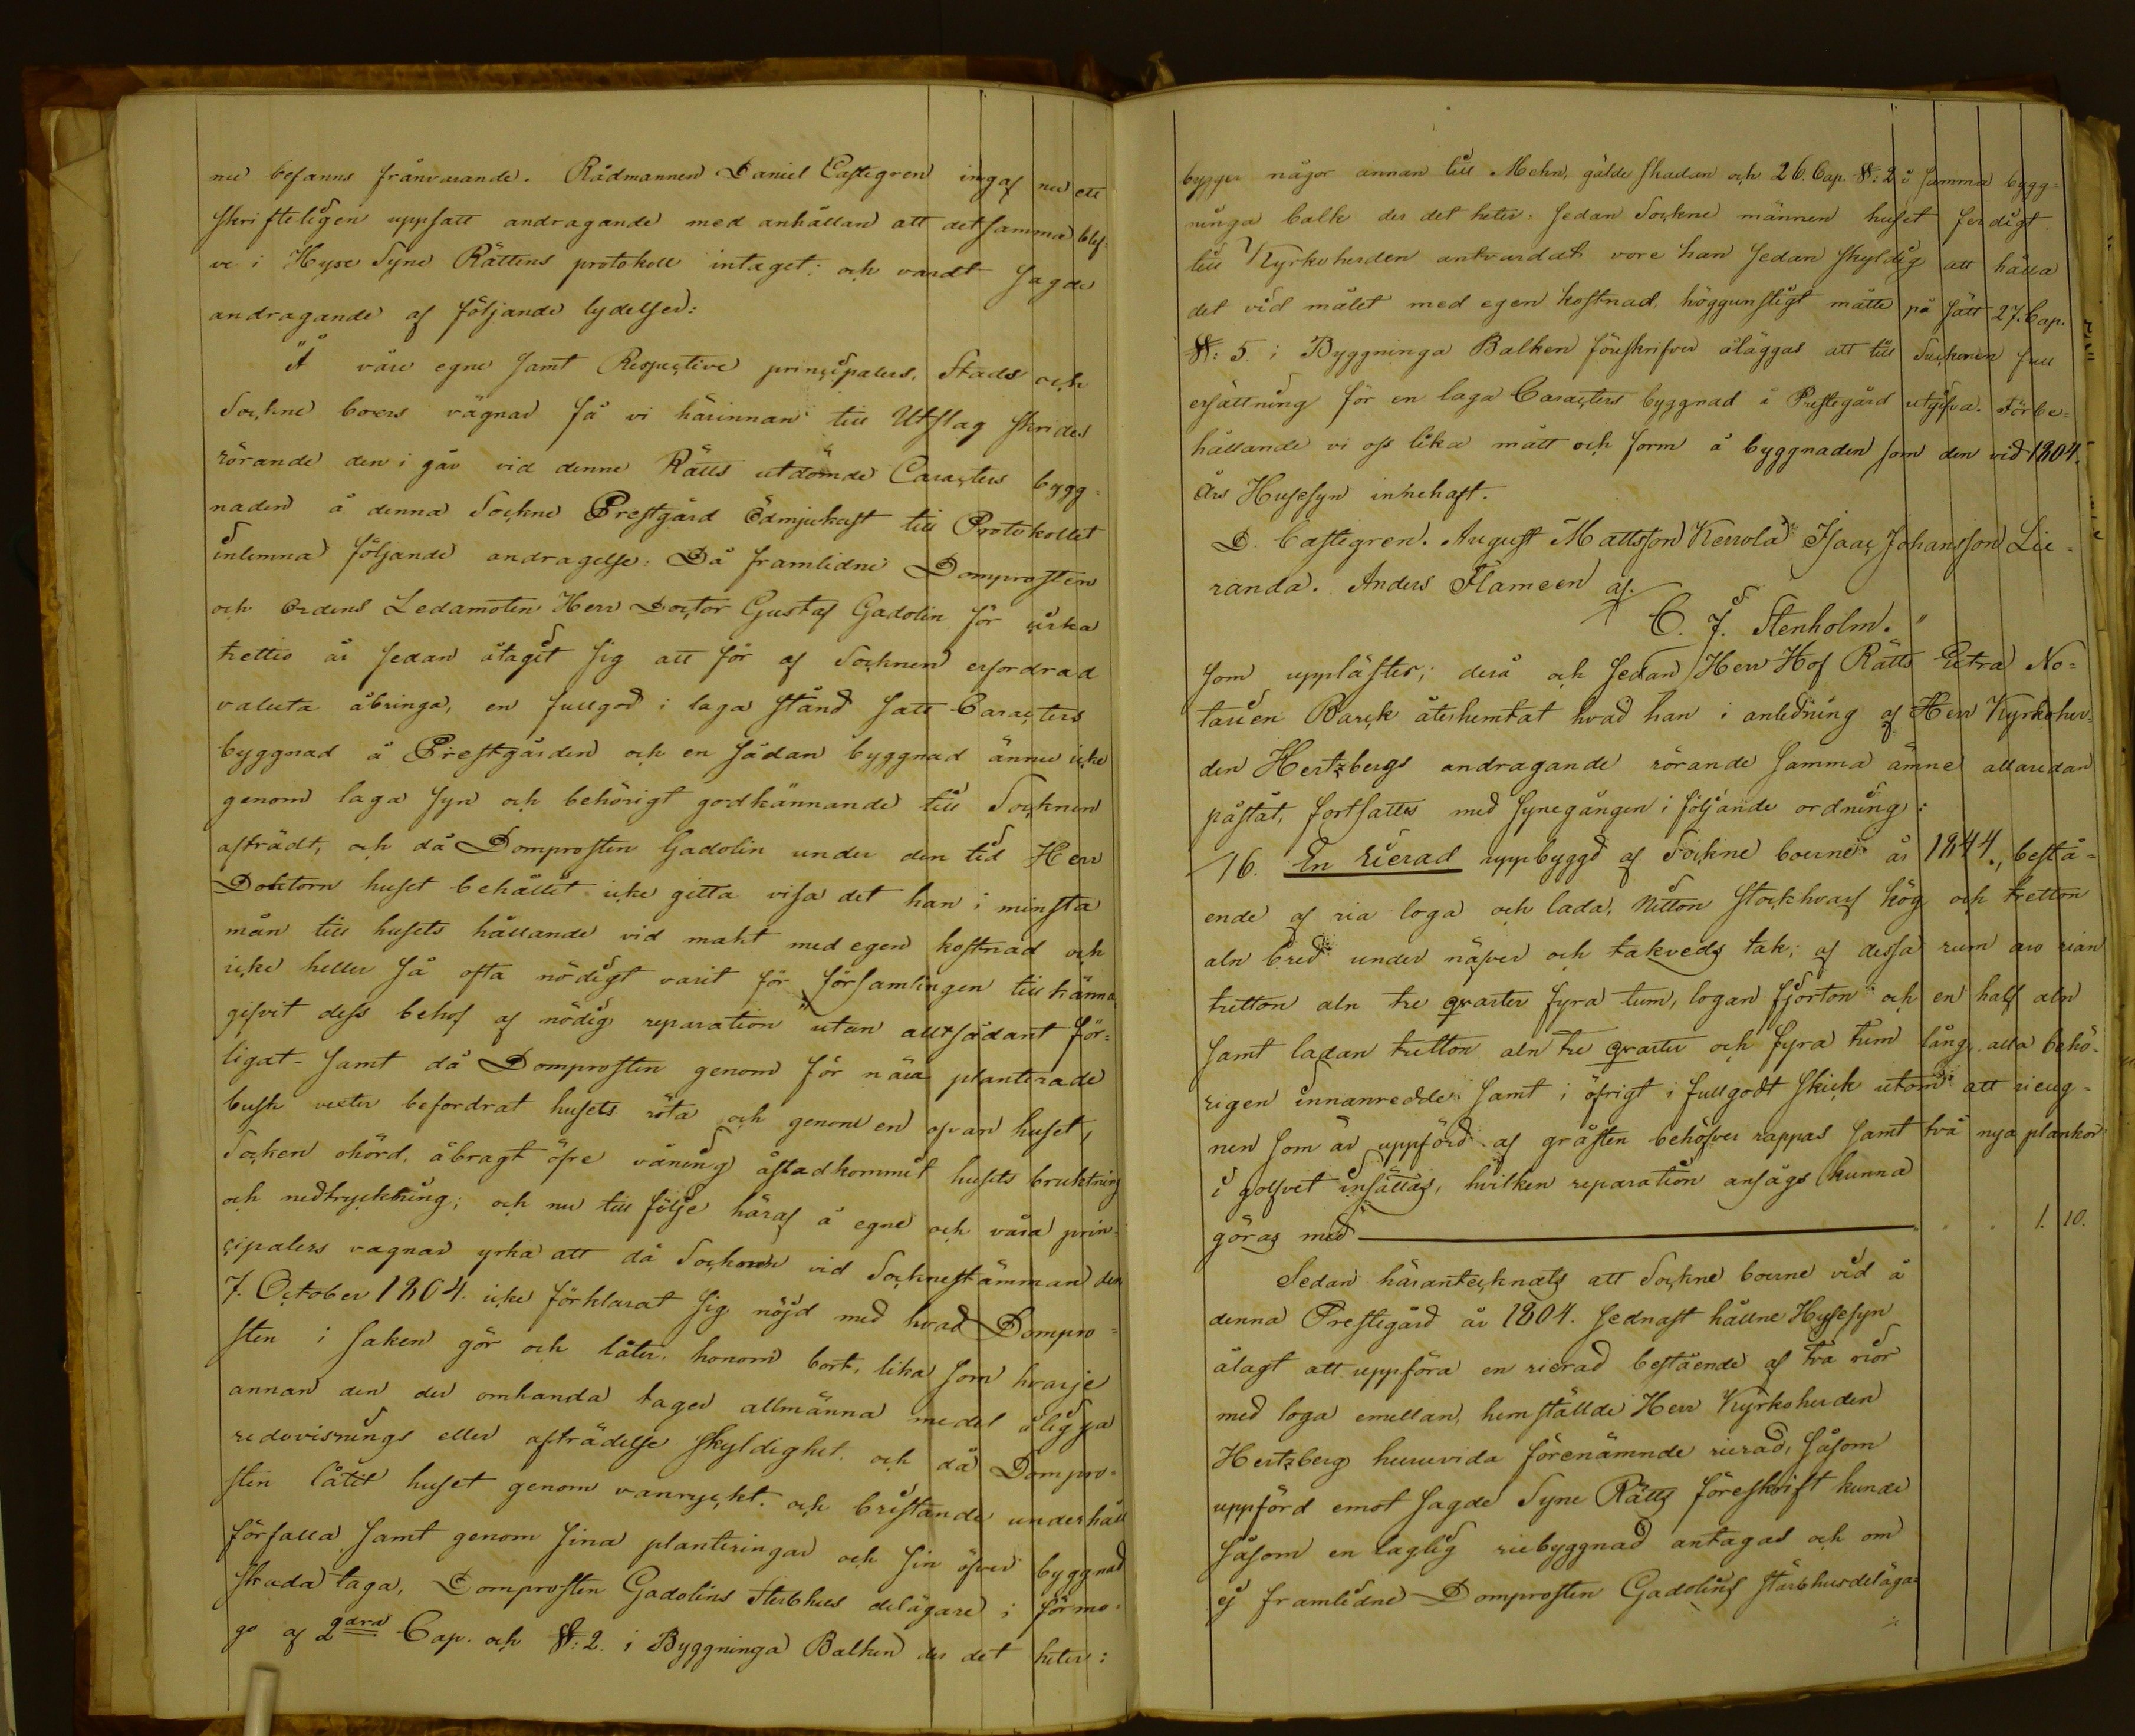 nu befanns frånvarande. Rådmannen Daniel Castegren ingaf nu ett
skrifteligen uppsatt andragande med anhållan att detsamma blef-
ve i Hyse Syne Rättens protokoll intaget; och vardt sagde
andragande af följande lydelser:
"Å våre egne samt Respective principalers, Stads och
Sockne boers vägnar få vi härinnan till Utslag skrides
rörande den i går vid denne Rätts utdömde Caracters bygg=
naden å denna Sockne Prestgård Ödmjukast till Protokollet
inlemna följande andragelse: Då framlidne Domprosten
och Ordens Ledamoten Herr Doctor Gustaf Gadolin för cirka
trettio år sedan åtagit sig att för af Socknen erfordrad
valuta åbringa, en fullgod i laga stånd satt Caracters
byggnad å Prestgården och en sådan byggnad ännu icke
genom laga syn och behörigt godkännande till Socknen
afträdt, och då Domprosten Gadolin under den tid Herr
Doktorn huset behållit icke gitta visa det han i minsta
mån till husets hållande vid makt med egen kostnad och
icke heller så ofta nödigt varit för församlingen tillkänna
gifvit dess behof af nödig reparation utan allt sådant för=
ligat - samt då Domprosten genom för nära planterade
busk vexter befordrat husets röta och genom en ofvan huset,
Socken ohörd, åbragt öfre våning åstadkommit husets bruktning
och nedtryckning; och nu till följe häraf å egne och våra prin-
cipalers vagnar yrka att då Socknen vid Socknestämman den
7. October 1804. icke förklarat sig nöjd med hvad Dompro=
sten i saken gör och låter. honom bort, lika som hvarje
annan den der omhanda tager allmänna medel åligga
redovisnings eller afträdelse skyldighet. och då Dompro-
sten låtit huset genom vanryckt. och bristande underhåll
förfalla samt genom sina planteringar och sin öfver byggnad
skada taga, Domprosten Gadolins Sterbhus delägare i förmo-
go af 2dra Cap. och §: 2. i Byggninga Balken der det heter:
bygger någor annan till Mehn, gälde skadan och 26. Cap. §: 2 i samma bygg=
ninga balk der det heter: sedan Sockne männen huset ferdigt
till Kyrkoherden antvardat vore han sedan skyldig att hålla
det vid målet med egen kostnad, höggunstligt måtte på sätt 27. Cap.
§: 5. i Byggninga Balken föreskrifver åläggas att till Socknen full
ersättning för en laga Caracters byggnad å Prestegård utgifva. Förbe=
hållande vi oss lika mått och form å byggnaden som den vid 1804.
Års Husesyn innehaft.
D. Castegren. August Mattsson Kerrola Isaac Johansson Lie=
randa. Anders Flameen af.
C. J. Stenholm. "
som upplästes; derå och sedan Herr Hof Rätts Extra No=
tarien Barck återhemtat hvad han i anledning af Herr Kyrkoher=
den Hertzbergs andragande rörande samma ämne allaredan
påstått, fortsattes med synegången i följande ordning:
16. En Rierad uppbyggd af Sockne boerne år 1844., bestå=
ende af ria loga och lada, Nitton stockhvarf hög och tretton
aln bred under näfver och takveds tak; af dessa rum äro rian
tretton aln tre qvarter fyra tum, logan fjorton och en half aln
samt ladan tretton aln tre qvarter och fyra tum lång, alla behö-
rigen innanredde samt i öfrigt i fullgodt skick utom att rieug=
nen som är uppförd af gråsten behöfver rappas samt två nya plankor
i golfvet insättas, hvilken reparation ansågs kunna
göras med . . 1. 10.
Sedan härantecknats att Sockne boerne vid å
denna Prestegård år 1804. sednast hållne Husesyn
ålagt att uppföra en rierad bestående af två rior
med loga emellan, hemställde Herr Kyrkoherden
Hertzberg huruvida förenämnde rierad, såsom
uppförd emot sagde Syne Rätts föreskrift kunde
såsom en laglig riebyggnad antagas och om
ej framlidne Domprosten Gadolins stärbhusdeläga=